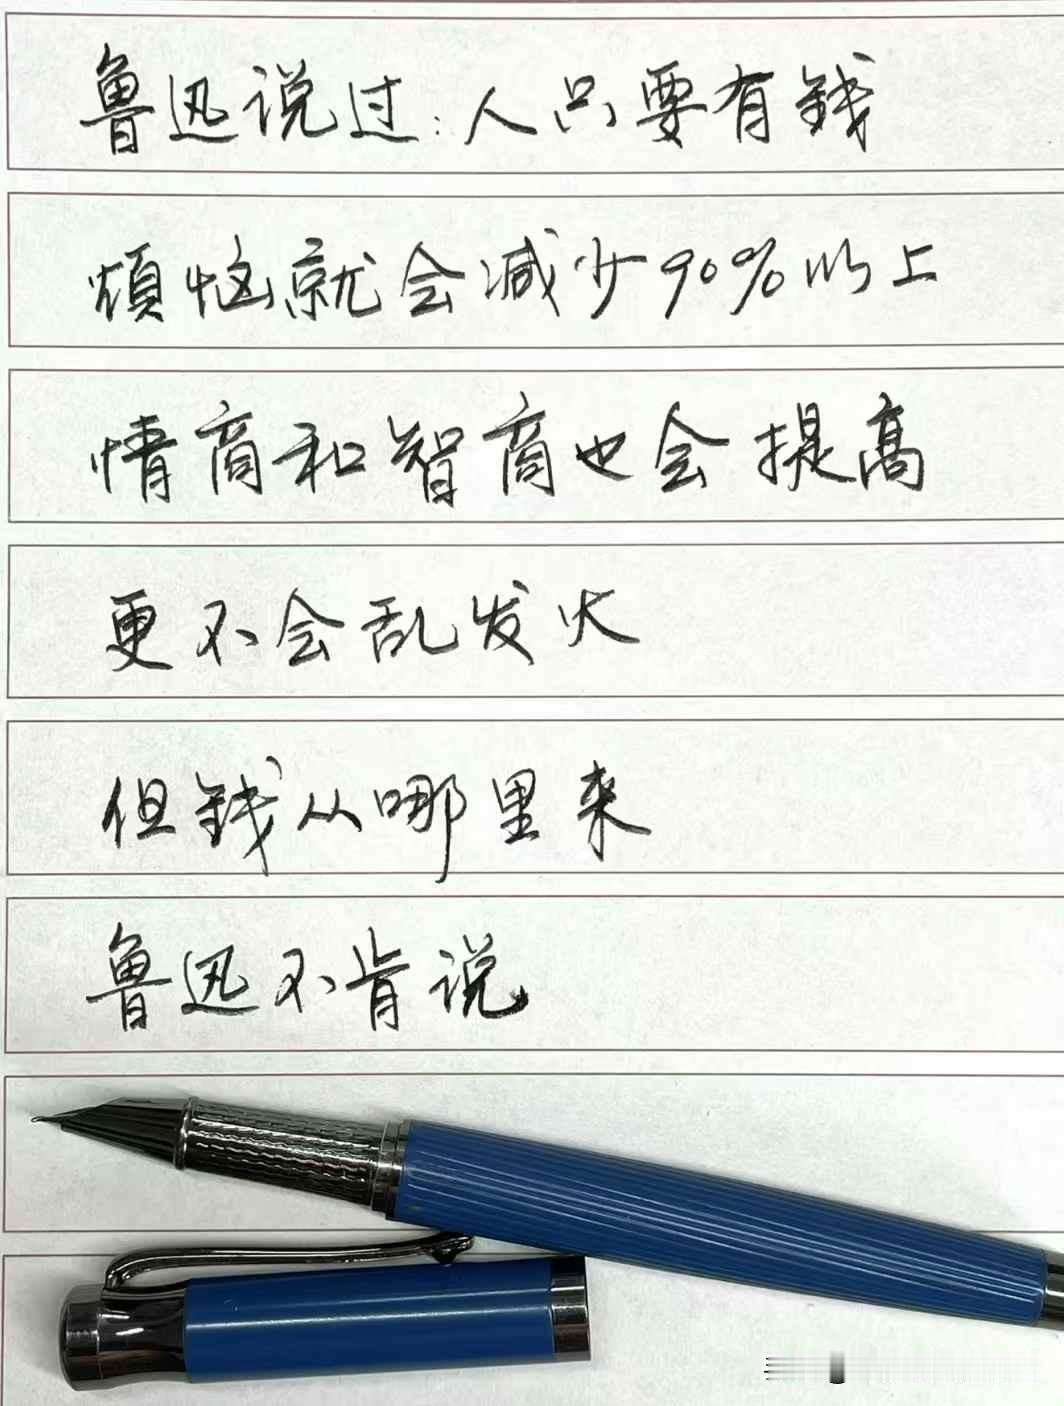 鲁迅说过:人只要有錢
煩恼就会减少90%以上
情商和智商也会提高
更不会乱发火
但錢从哪里来
鲁迅不肯说